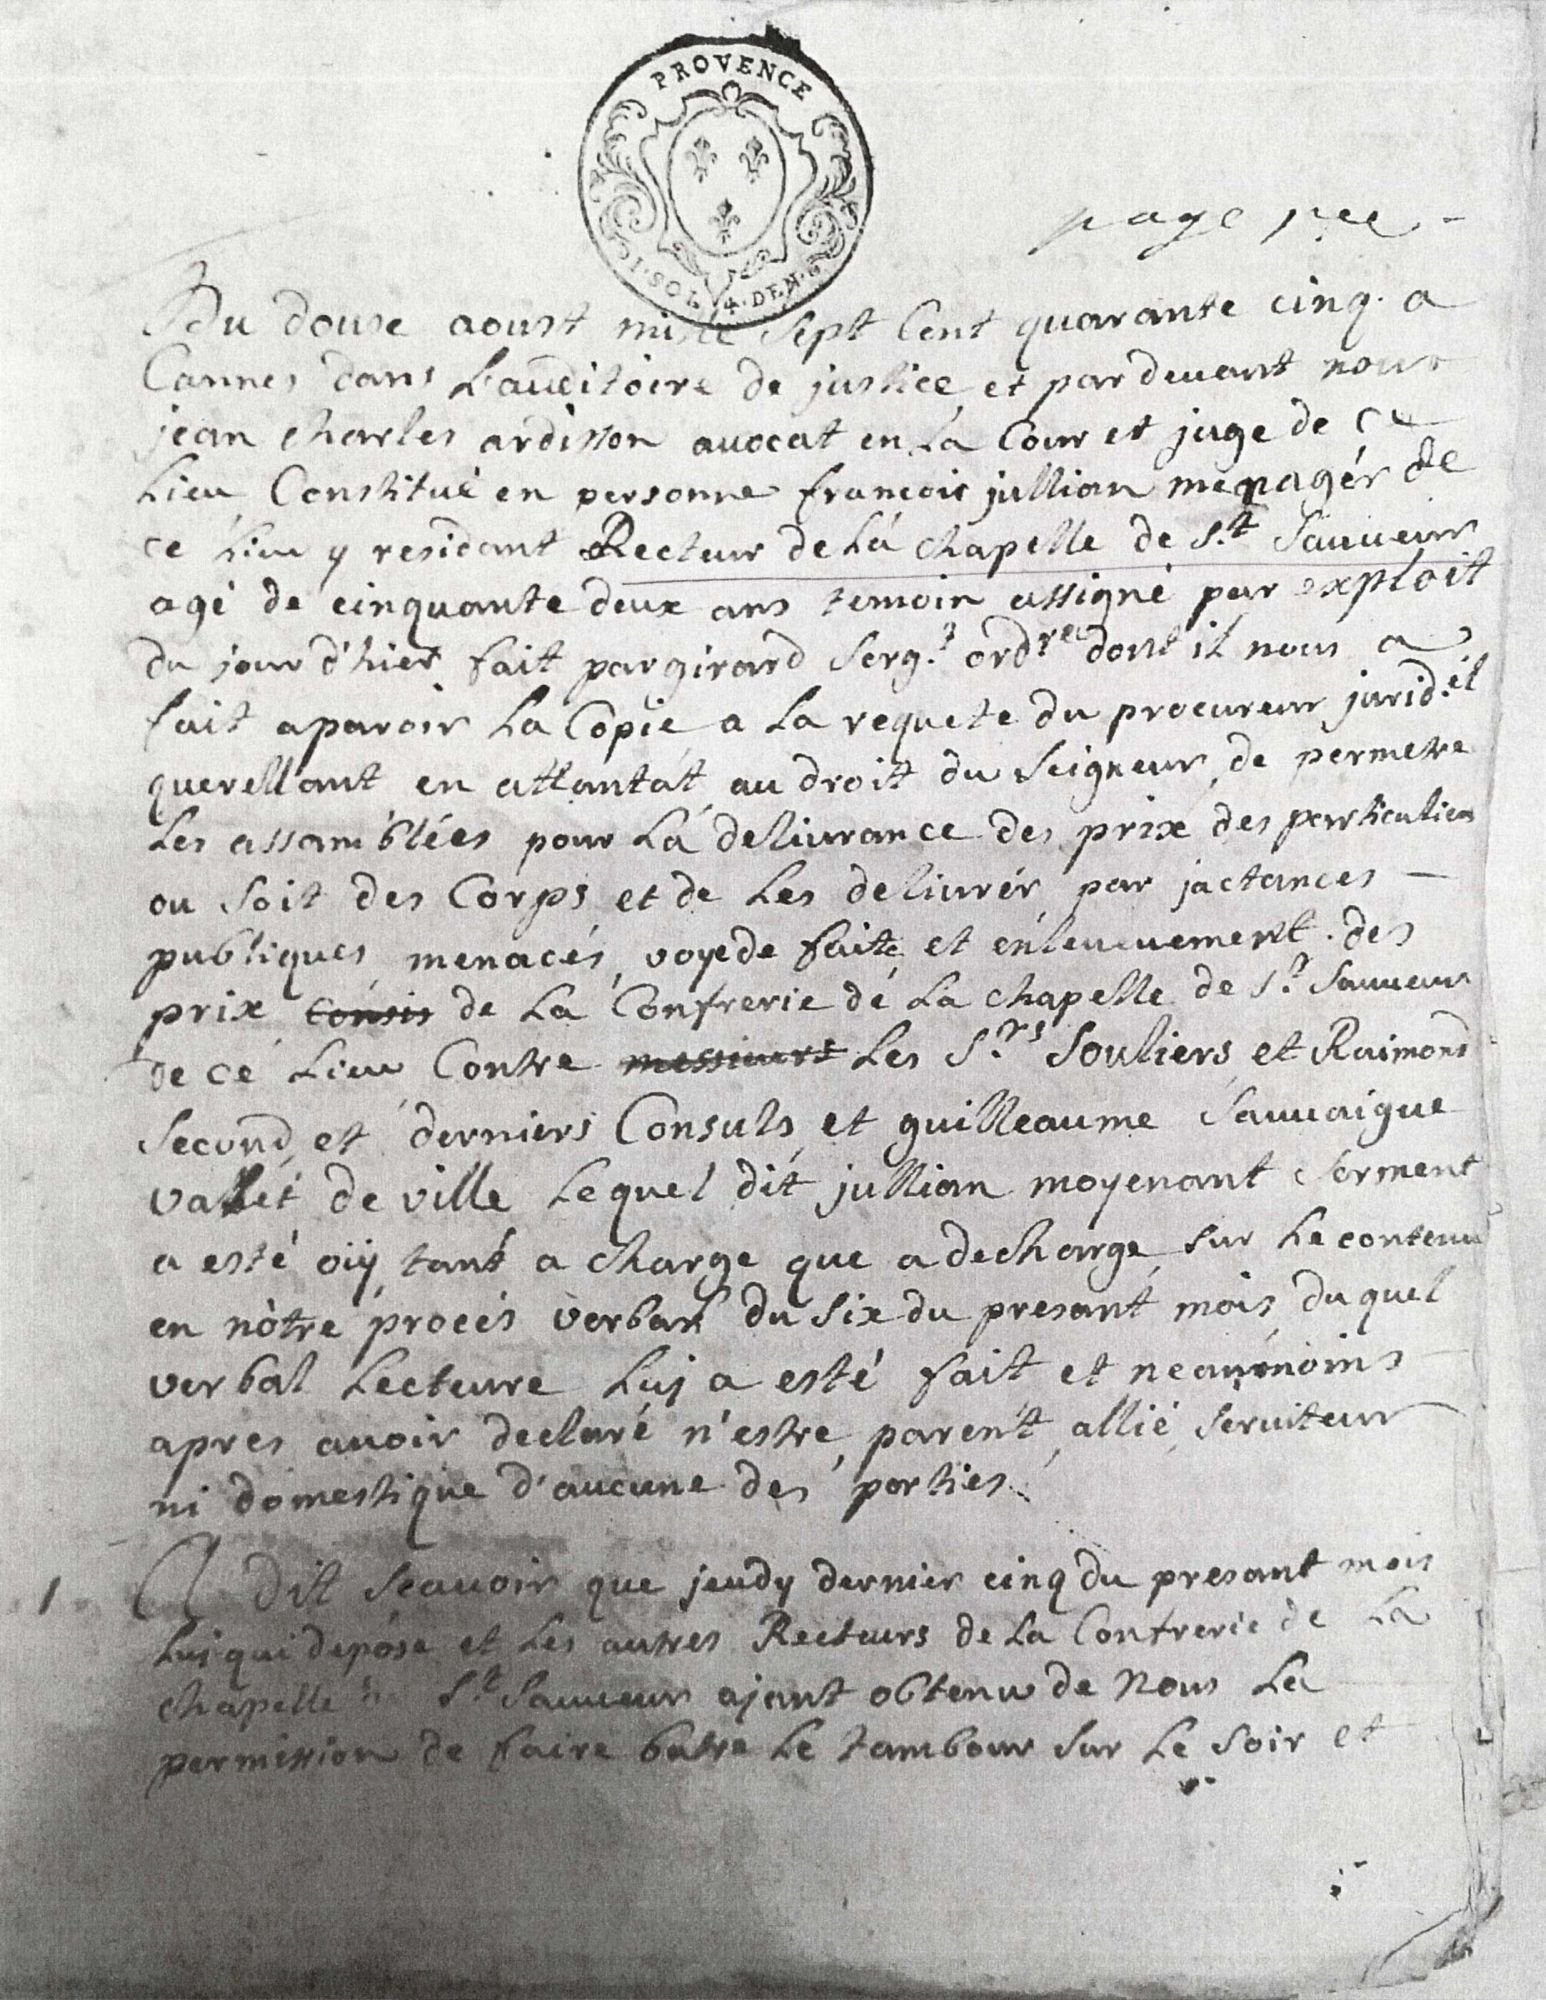 PROVENCE
1 · SOL 4 · DEN · 6
page 1ere
Du douse aoust mille sept Cent quarante cinq a
Cannes dans L'auditoire de justice et pardevant nous
jean charles ardisson avocat en La Cour et juge de ce
Lieu Constitué en personne francois jullian menagér de
ce Lieu y residant Recteur de La chapelle de S.t Sauveur
agé de cinquante deux ans temoin assigné par exploit
du jour d'hier fait par girard serg.t ord.re dont il nous a
fait aparoir La Copie a La requete du procureur jurid.el
querellant en attantat au droit du Seigneur de permetre
Les assamblées pour La delivrance des prix des particuliers
ou soit des Corps et de Les delivrér par jactances
publiques menacés, voye de faite et enlevevement des
prix consis de La Confrerie de La chapelle de S.t Sauveur
de cé Lieu Contre messieurs Les S.rs Souliers et Raimond
second et derniers Consuls et guilleaume Sauvaigue
valet de ville Lequel dit jullian moyenant serment
a esté oüy tant a charge que a decharge sur Le contenu
en nôtre procés verbal du six du presant mois duquel
verbal Lecture Luy a esté fait et neanmoins
apres avoir declaré n'estre parent allié, serviteur
ni domestique d'aucune des parties.
1 A dit scavoir que jeudy dernier cinq du presant mois
Luy qui depose et Les autres Recteurs de La Confrerie de La
chapelle S.t Sauveur ajant obtenu de Nous La
permission de faire batre Le tambour sur Le soir et